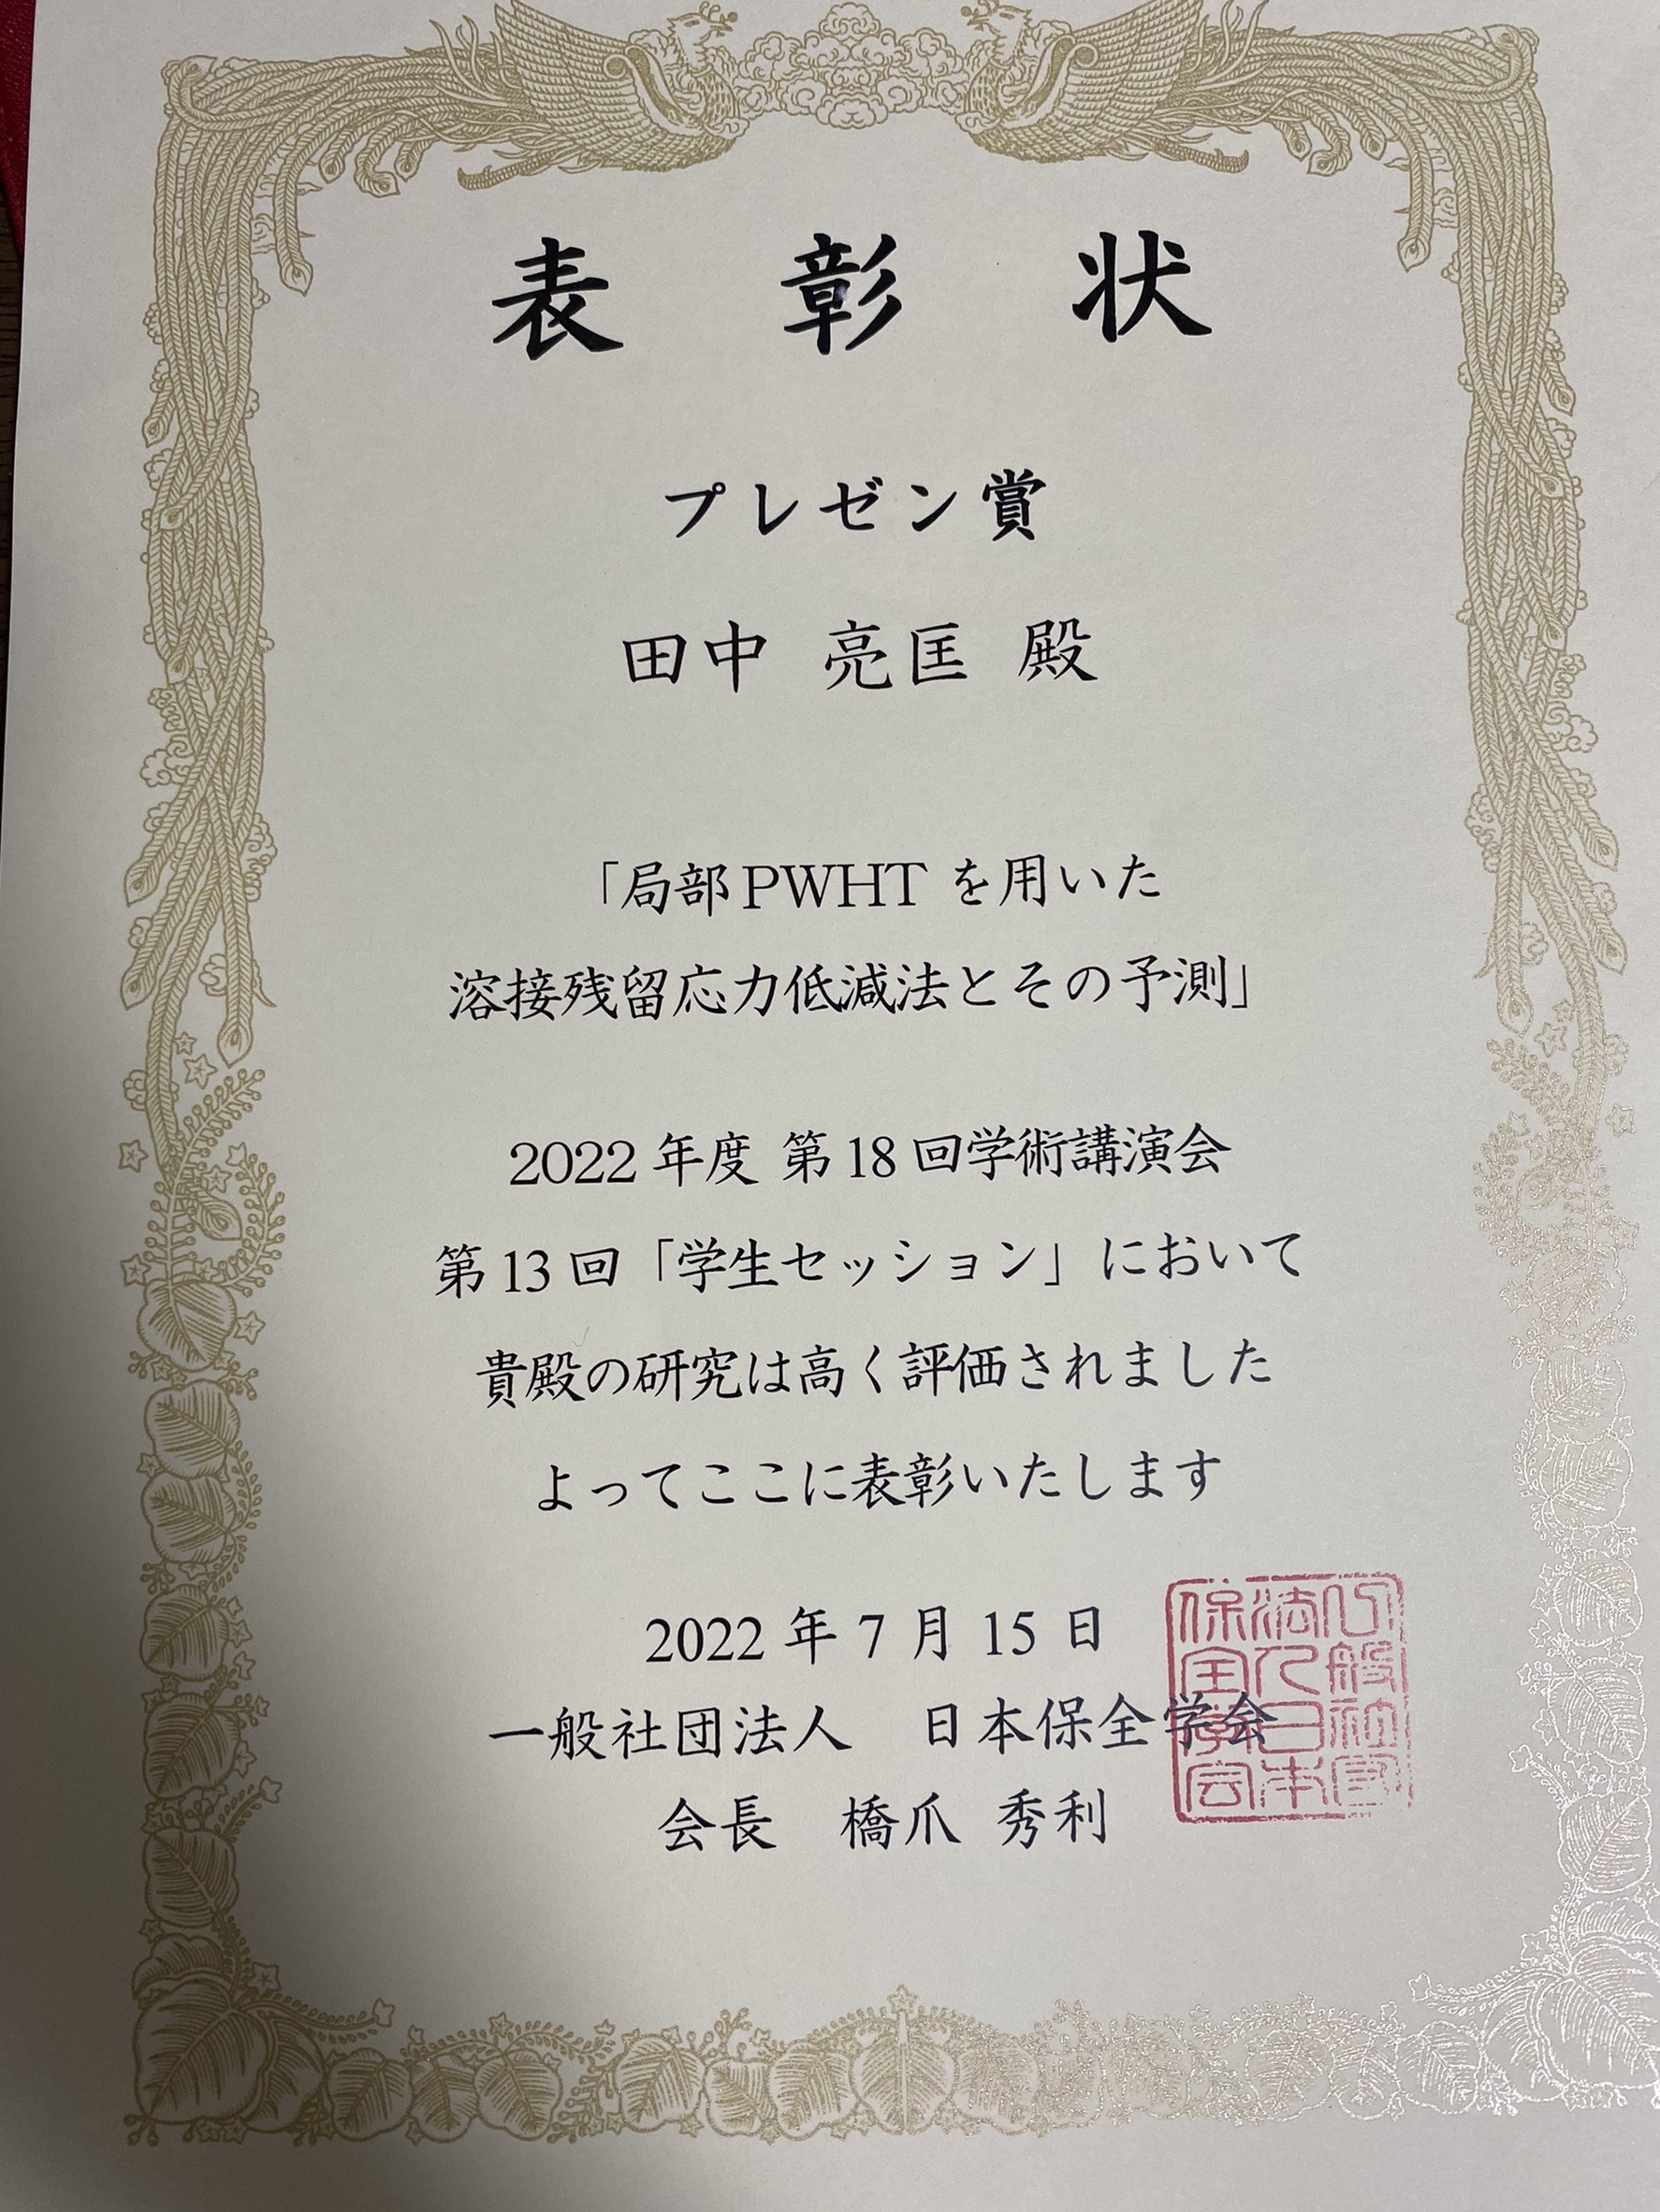 表彰状
プレゼン賞
田中 亮匡 殿
「局部PWHT を用いた
溶接残留応力低減法とその予測」
2022 年度 第 18 回学術講演会
第 13 回「学生セッション」において
貴殿の研究は高く評価されました
よってここに表彰いたします
2022 年 7 月 15 日
一般社団法人 日本保全学会
会長 橋爪 秀利
一般社団
法人日本
保全学会